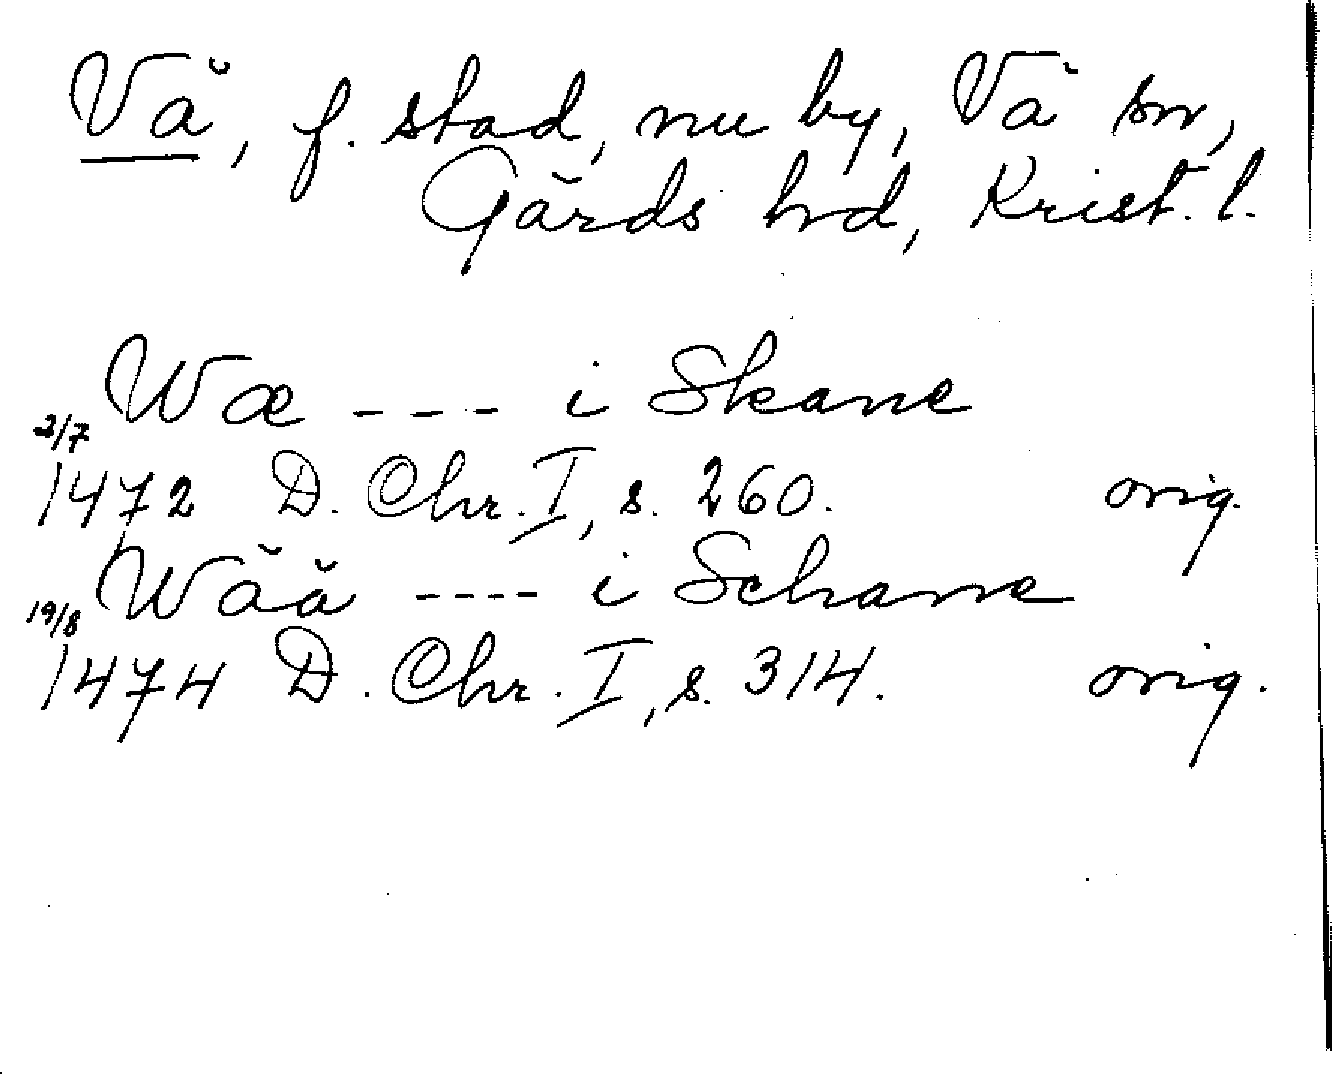 Vä, f. stad, nu by, Vä sn,
Gärds hd, Krist. l.
Wæ - - - - i Skane
2/7
1472 D. Chr. I, s. 260. orig.
Wää - - - - i Schane
19/8
1474 D. Chr. I, s. 314. orig.